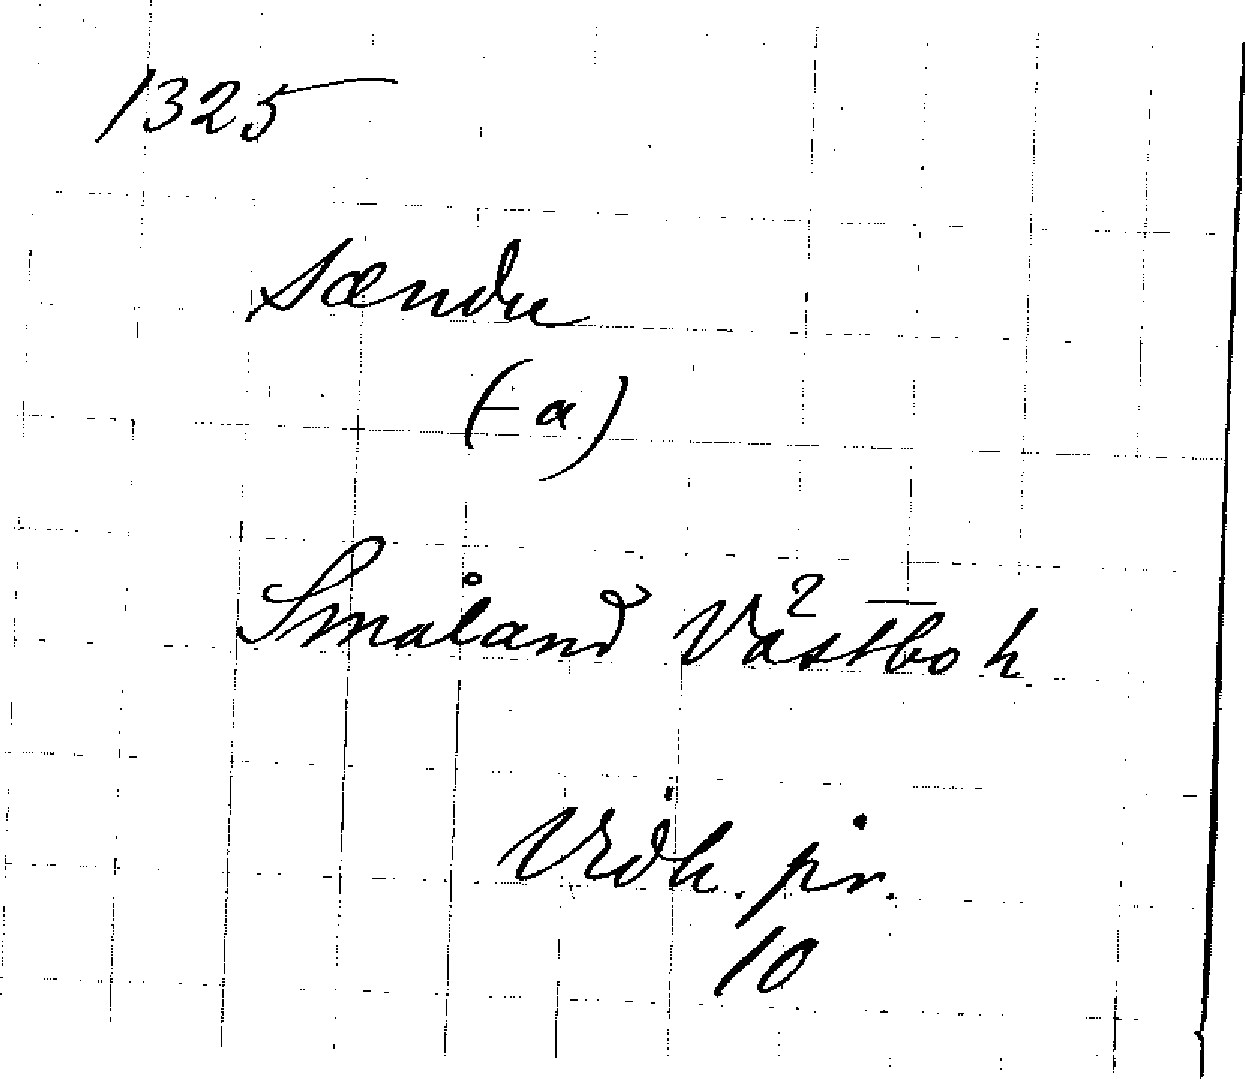 1325
sændu
(-a)
Småland Västbo h.
Vrdh. pr.
10